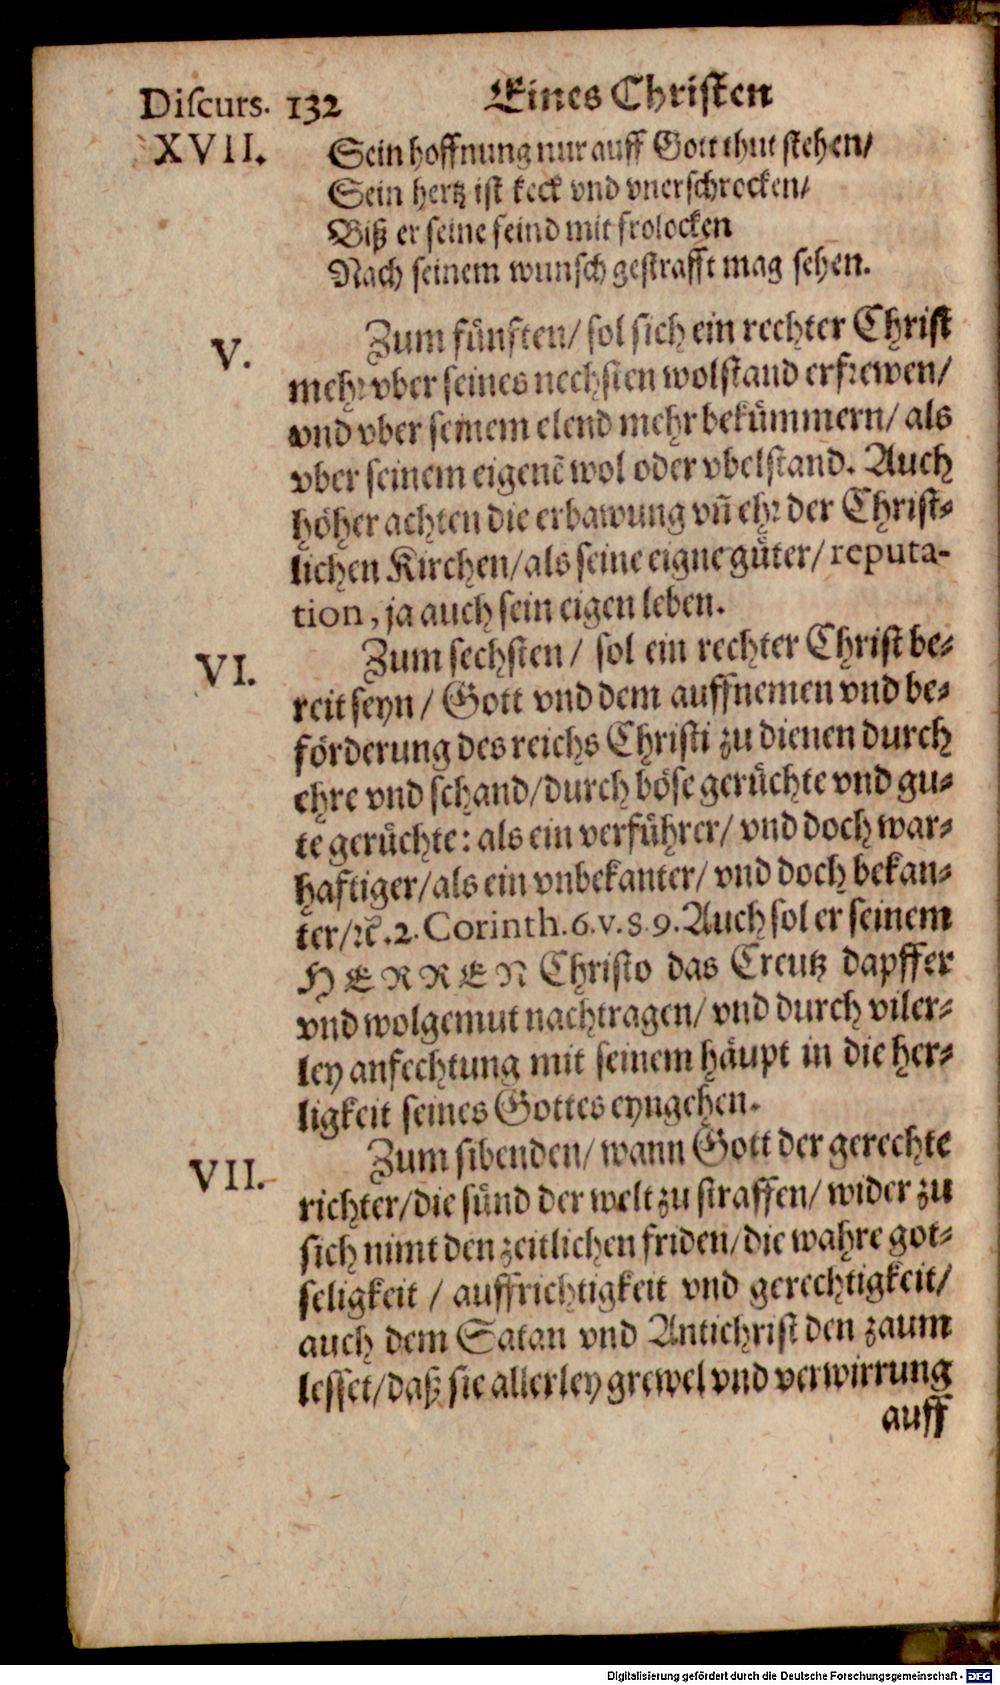 Diſcurs. 132 Eines Chriſten
XVII.
Sein hoffnung nur auff Gott thut ſtehen/
Sein hertz iſt keck vnd vnerſchrocken/
Biß er ſeine feind mit frolocken
Nach ſeinem wunſch geſtrafft mag ſehen.
V. Zum fünften/ ſol ſich ein rechter Chriſt
mehr vber ſeines nechſten wolſtand erfrewen/
vnd vber ſeinem elend mehr bekümmern/ als
vber ſeinem eigenẽ wol oder vbelſtand. Auch
höher achten die erbawung vñ ehr der Chriſt-
lichen Kirchen/ als ſeine eigne güter/ reputa-
tion, ja auch ſein eigen leben.
VI. Zum ſechſten/ ſol ein rechter Chriſt be-
reit ſeyn/ Gott vnd dem auffnemen vnd be-
förderung des reichs Chriſti zu dienen durch
ehre vnd ſchand/ durch böſe gerüchte vnd gu-
te gerüchte: als ein verführer/ vnd doch war-
haftiger/ als ein vnbekanter/ vnd doch bekan-
ter/ ꝛc̃. 2. Corinth. 6. v. 8. 9. Auch ſol er ſeinem
HERREN Chriſto das Creutz dapffer
vnd wolgemut nachtragen/ vnd durch viler-
ley anfechtung mit ſeinem häupt in die her-
ligkeit ſeines Gottes eyngehen.
VII. Zum ſibenden/ wann Gott der gerechte
richter/ die ſünd der welt zu ſtraffen/ wider zu
ſich nimt den zeitlichen friden/ die wahre got-
ſeligkeit / auffrichtigkeit vnd gerechtigkeit/
auch dem Satan vnd Antichriſt den zaum
leſſet/ daß ſie allerley grewel vnd verwirrung
auff
Digitalisierung gefördert durch die Deutsche Forschungsgemeinschaft - DFG